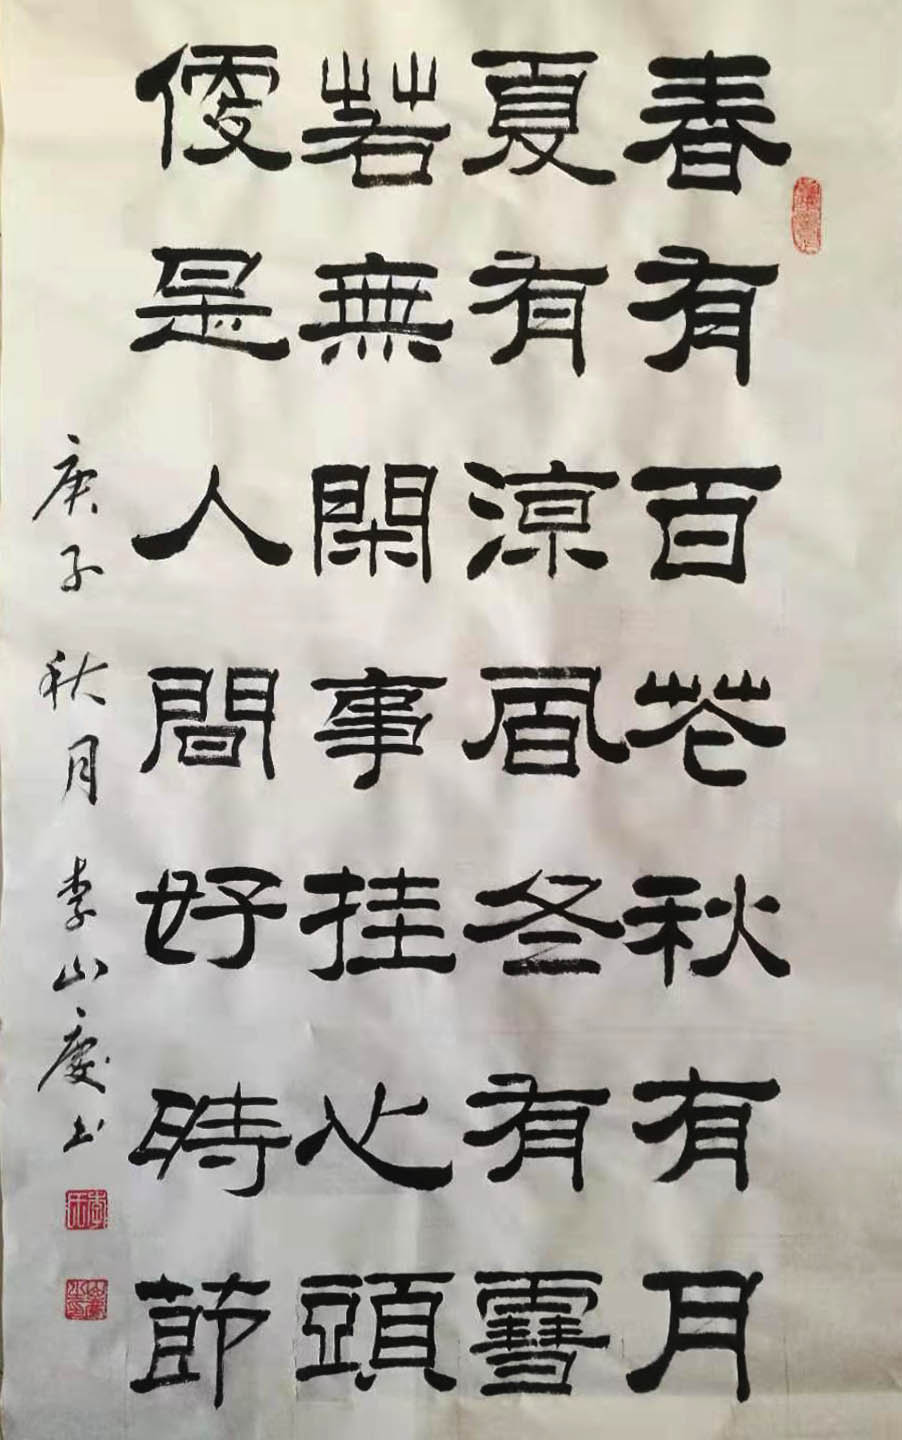 春有百花秋有月
夏有涼風冬有雪
若無閑事挂心頭
便是人間好時節
庚子秋月李山慶书